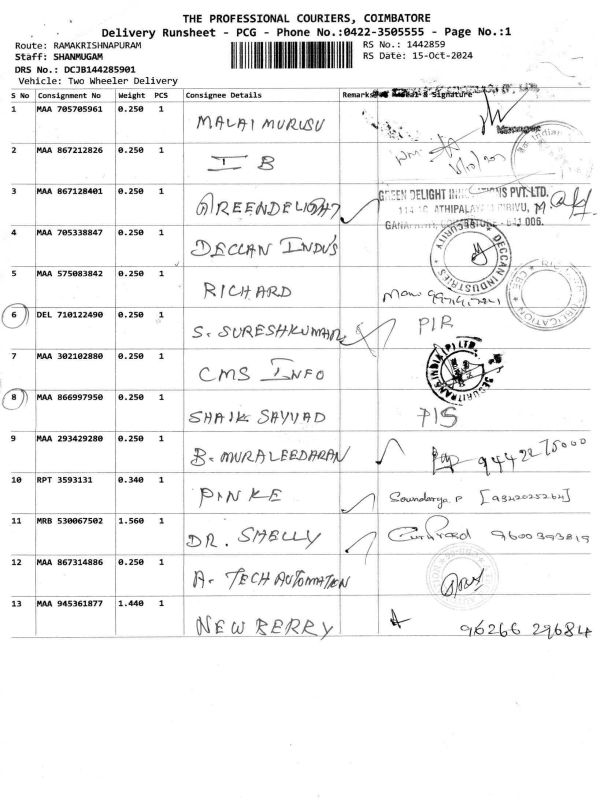 THE PROFESSIONAL COURIERS, COIMBATORE
Delivery Runsheet - PCG - Phone No.:0422-3505555 - Page No.:1
Route: RAMAKRISHNAPURAM RS No.: 1442859
Staff: SHANMUGAM RS Date: 15-Oct-2024
DRS No.: DCJB144285901
Vehicle: Two Wheeler Delivery
S No Consignment No Weight PCS Consignee Details Remarks & Signature
1 MAA 705705961 0.250 1 MALAI MURUSU Manager
2 MAA 867212826 0.250 1 I B
3 MAA 867128401 0.250 1 GREENDELIGHT GREEN DELIGHT INNOVATIONS PVT. LTD.
ATHIPALAYAM PIRIVU,
641 006.
4 MAA 705338847 0.250 1 DECCAN INDUS DECCAN INDUSTRIES SECURITY
5 MAA 575083842 0.250 1 RICHARD
6 DEL 710122490 0.250 1 S. SURESHKUMAR PIR
7 MAA 302102880 0.250 1 CMS INFO
8 MAA 866997950 0.250 1 SHAIK SAYYAD PIS
9 MAA 293429280 0.250 1 B. MURALEEDARAN 94422 75000
10 RPT 3593131 0.340 1 PINKE Soundarya P [9342025264]
11 MRB 530067502 1.560 1 DR. SHELLY 9600393819
12 MAA 867314886 0.250 1 A. TECH AUTOMATION
13 MAA 945361877 1.440 1 NEW BERRY 96266 29684